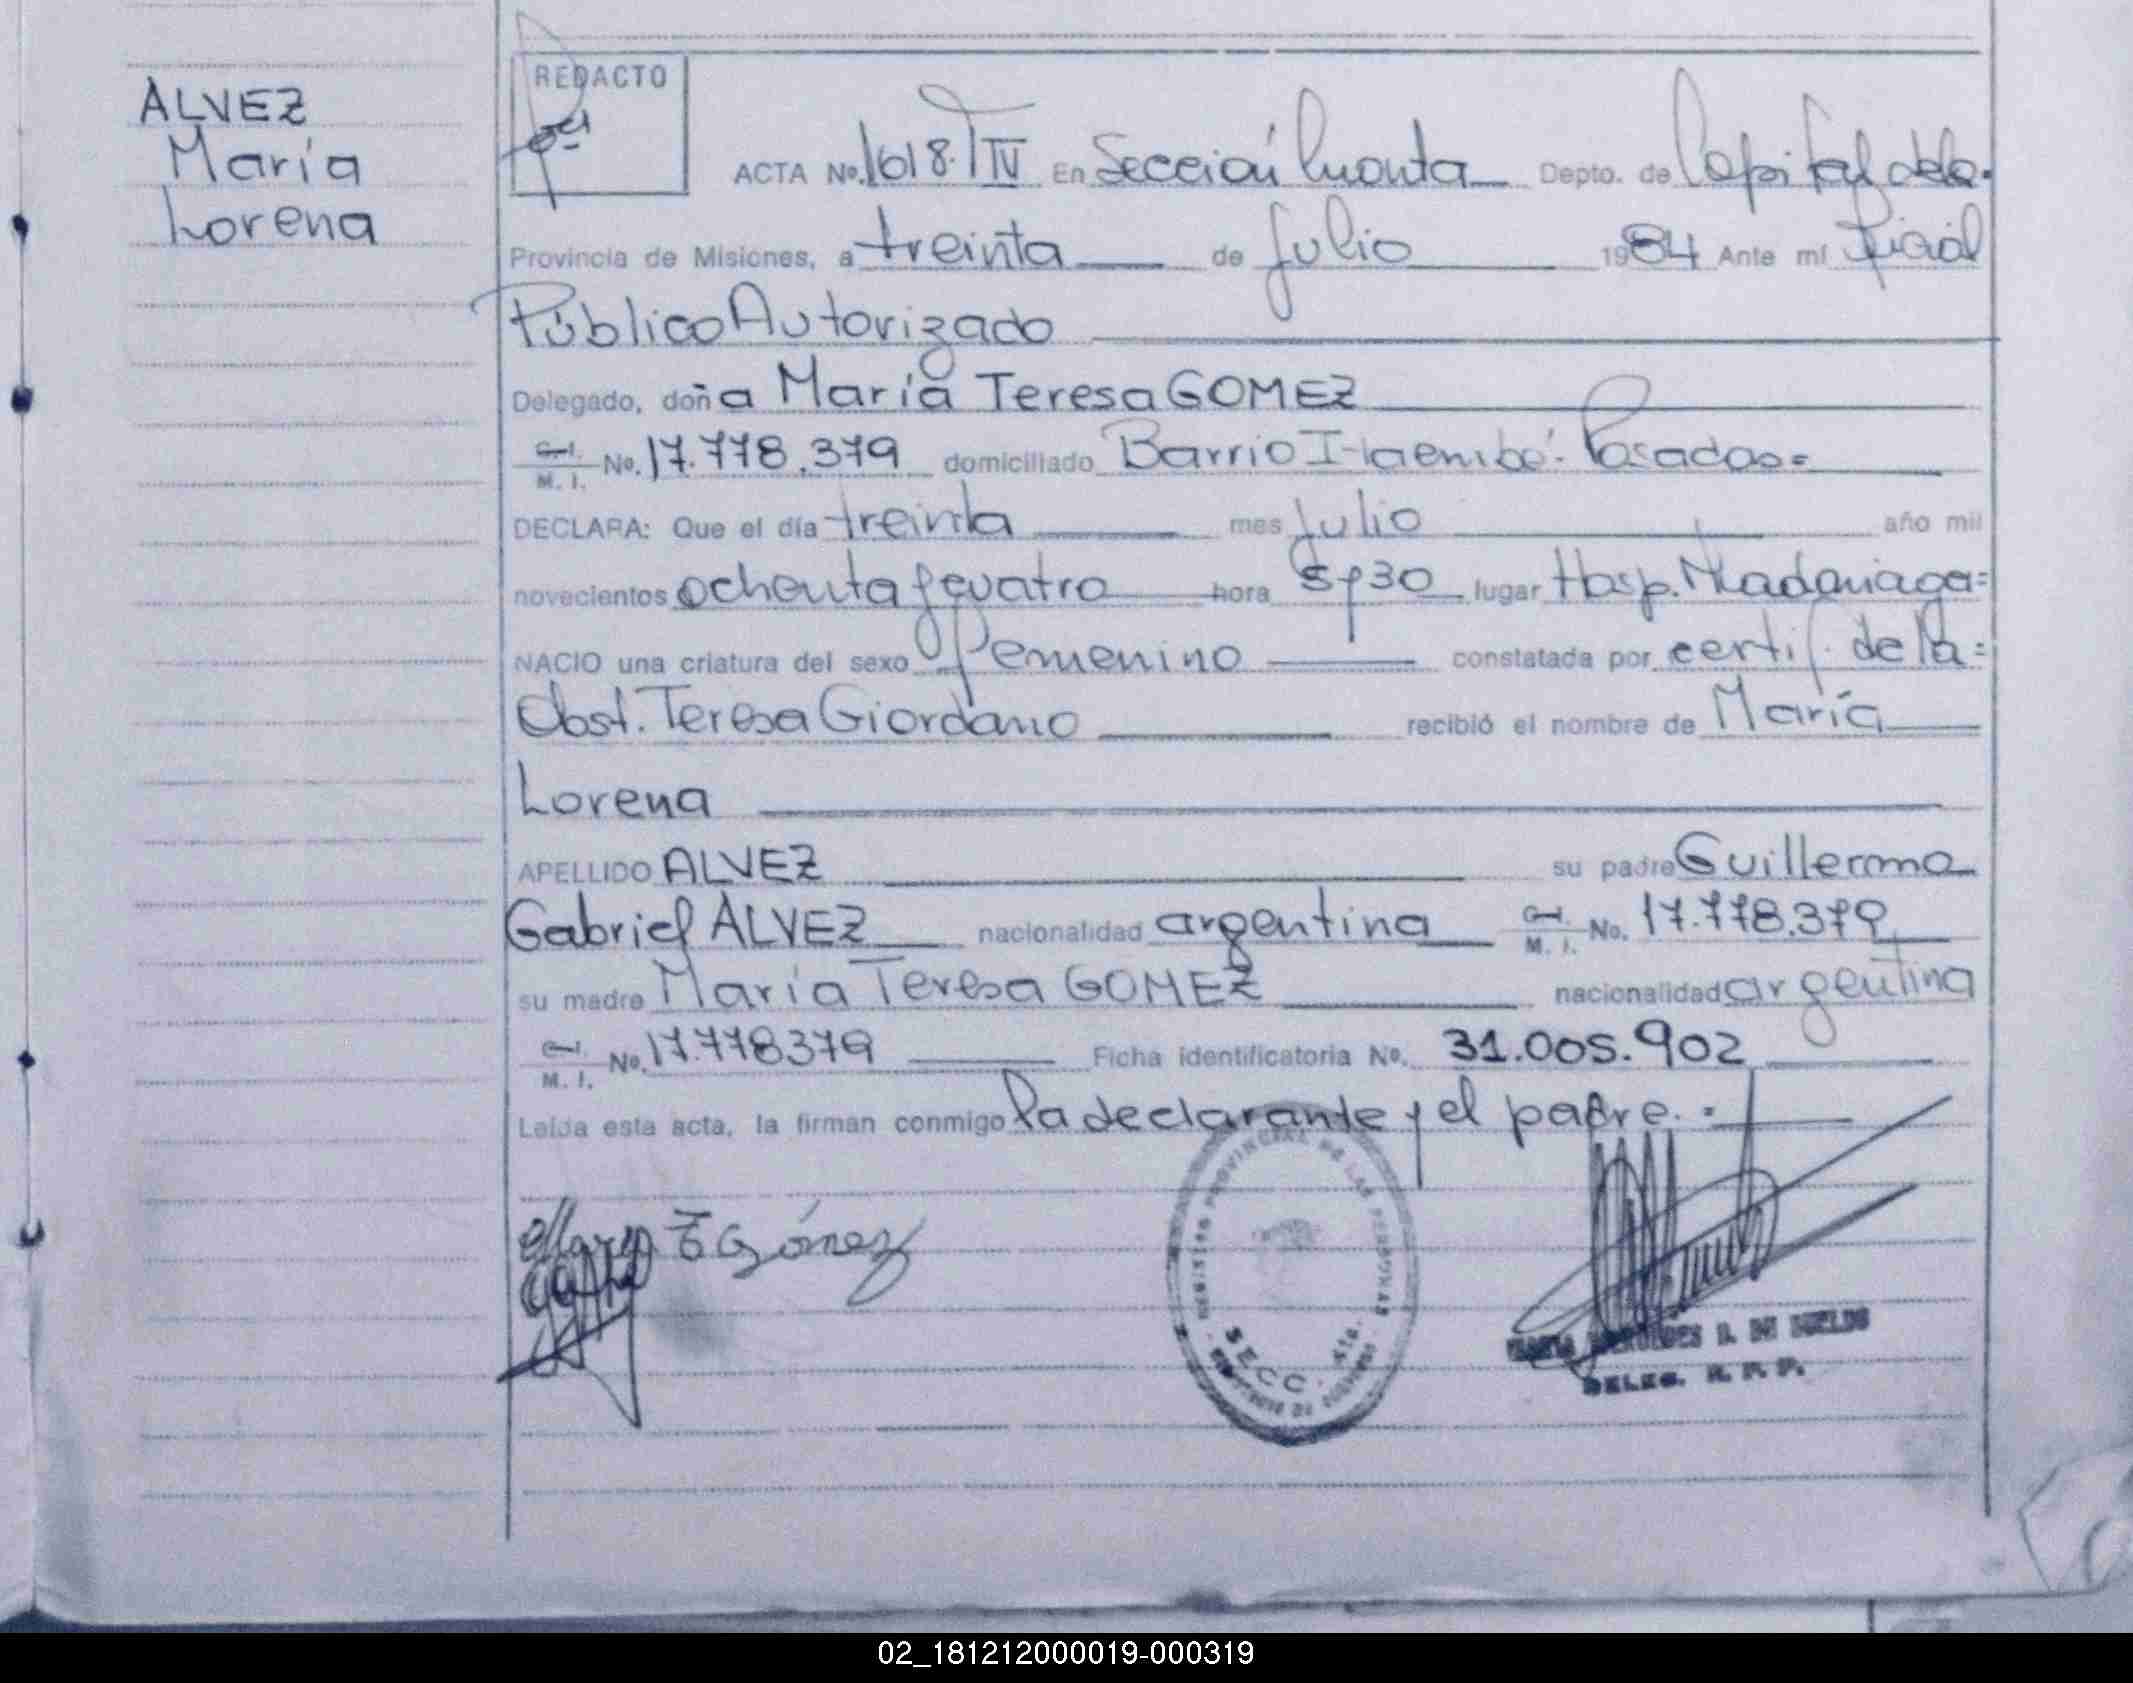 ALVEZ
María
Lorena
REDACTO
ACTA No. 1618. / IV En Sección Cuarta Depto. de Capital de la-
Provincia de Misiones, a treinta de Julio 1984 Ante mí
Público Autorizado
Delegado, doña María Teresa GOMEZ
C.I. M. I. No. 17.778.379 domiciliado Barrio Itaembé. Posadas=
DECLARA: Que el día treinta mes Julio año mil
novecientos ochenta y cuatro hora lugar Hosp. Madariaga=
NACIO una criatura del sexo Femenino constatada por certif. de la=
Obst. Teresa Giordano recibió el nombre de María
Lorena
APELLIDO ALVEZ su padre Guillermo
Gabriel ALVEZ nacionalidad argentina C.I. M. I. No. 17.778.379
su madre María Teresa GOMEZ nacionalidad argentina
C.I. M. I. No. 17.778379 Ficha identificatoria No. 31.005.902
Leída esta acta, la firman conmigo la declarante y el padre.-
María T Gómez
REGISTRO PROVINCIAL DE LAS PERSONAS
SECC. 4ta.
DELEG. R. P. P.
02_181212000019-000319